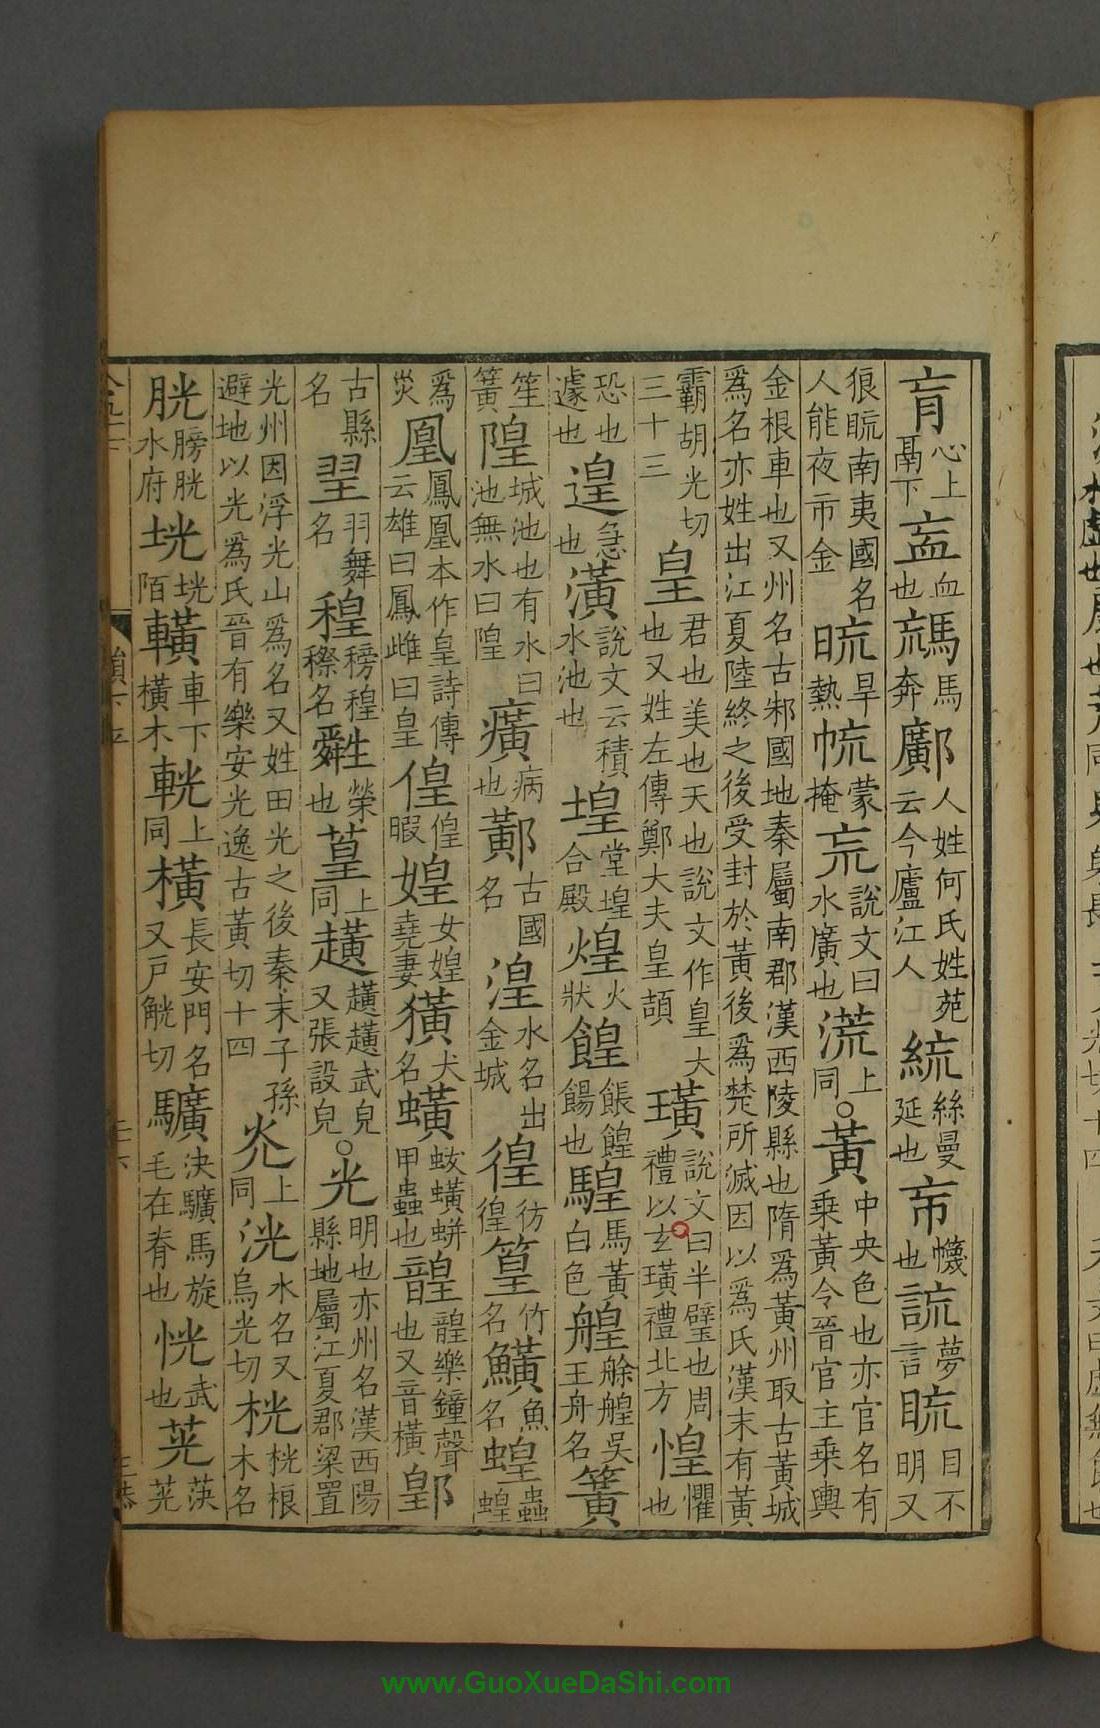 肓心上鬲下衁血也𩧢馬奔鄺人姓何氏姓苑云今廬江人統絲曼延也㡆幭也詤夢言䀮目不明又
狼䀮南夷國名人能夜市金㫰旱熱㡛蒙掩㠩說文曰水廣也㵃上同○黃中央色也亦官名有乘黃令晉官主乘輿
金根車也又州名古邾國地秦屬南郡漢西陵縣也隋爲黃州取古黃城爲名亦姓出江夏陸終之後受封於黃後爲楚所滅因以爲氏漢末有黃
霸胡光切三十三皇君也美也天也說文作皇大也又姓左傳鄭大夫皇頡璜說文曰半璧也周禮以玄璜禮北方惶懼也
恐也遽也遑急也潢說文云積水池也堭堂堭合殿煌火狀餭餦餭餳也騜馬黃白色艎艅艎吳王舟名簧
笙簧隍城池也有水曰池無水曰隍癀病也鄼古國名湟水名出金城徨彷徨篁竹名鱑魚名蝗蟲蝗
爲災凰鳳凰本作皇詩傳云雄曰鳳雌曰皇偟偟暇媓女媓堯妻獚犬名蟥蛂蟥蛢甲蟲也韹韹樂鐘聲也又音橫鄓
古縣名翌羽舞名䅣穄名䑟榮也葟上同趪趪趪武皃又張設皃○光明也亦州名漢西陽縣地屬江夏郡梁置
光州因浮光山爲名又姓田光之後秦末子孫避地以光爲氏晉有樂安光逸古黃切十四灮上同洸水名又烏光切桄桄桹木名
胱膀胱水府垙垙陌𨎩車下橫木輄上同橫長安門名又戶觥切驦決驦馬旋毛在脊也恍武也茪茪